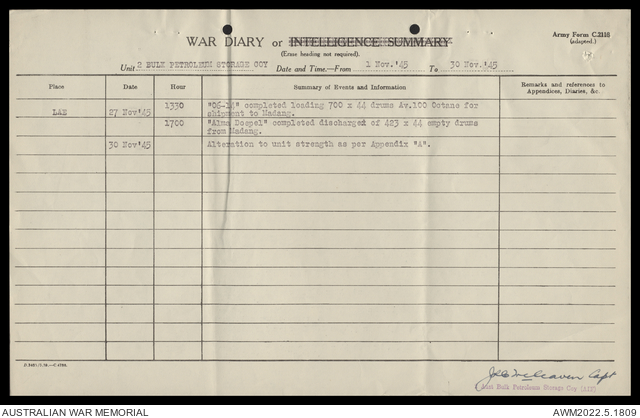 WAR DIARY or INTELLIGENCE SUMMARY
(Erase heading not required).
Army Form C.2118
(adapted.)
Unit 2 BULK PETROLEUM STORAGE COY Date and Time—From 1 Nov.'45 To 30 Nov.'45
Place Date Hour Summary of Events and Information Remarks and references to
Appendices, Diaries, &c.
LAE 27 Nov'45 1330 "06-14" completed loading 700 x 44 drums Av.100 Octane for
shipment to Madang.
1700 "Alma Doepel" completed discharge of 423 x 44 empty drums
from Madang.
30 Nov'45 Alteration to unit strength as per Appendix "A".
Capt
Aust Bulk Petroleum Storage Coy (AIF)
AUSTRALIAN WAR MEMORIAL
AWM2022.5.1809